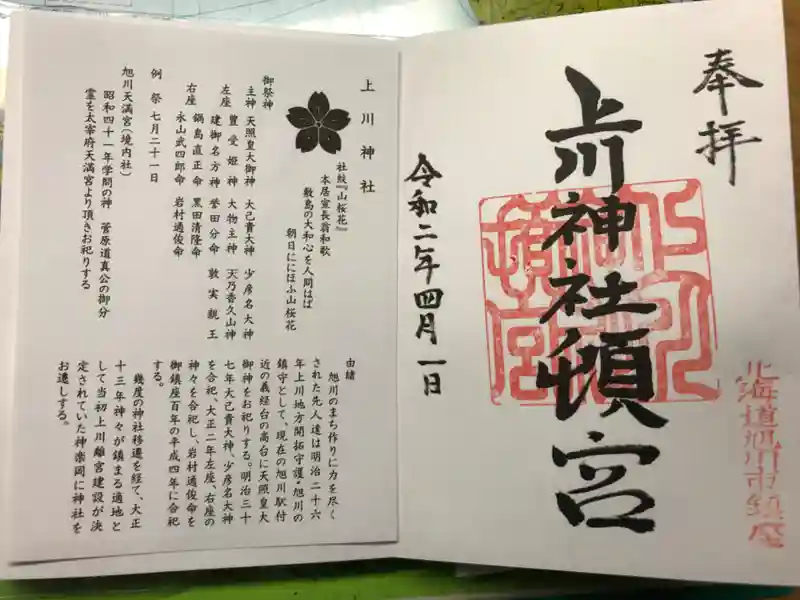 奉拝
上川神社頓宮
北海道旭川市鎮座
令和二年四月一日
上川神社
社紋『山桜花』
本居宣長翁和歌
敷島の大和心を人問はば
朝日ににほふ山桜花
御祭神
主神 天照皇大御神 大己貴大神 少彦名大神
左座 豊受姫神 大物主神 天乃香久山神
建御名方神 誉田分命 敦実親王
右座 鍋島直正命 黒田清隆命
永山武四郎命 岩村通俊命
例祭 七月二十一日
旭川天満宮(境内社)
昭和四十一年学問の神 菅原道真公の御分
霊を太宰府天満宮より頂きお祀りする
由緒
旭川のまち作りに力を尽く
された先人達は明治二十六
年上川地方開拓守護・旭川の
鎮守として、現在の旭川駅付
近の義経台の高台に天照皇大
御神をお祀りする。明治三十
七年大己貴大神、少彦名大神
を合祀、大正二年左座、右座の
神々を合祀し、岩村通俊命を
御鎮座百年の平成四年に合祀
する。
幾度の神社移遷を経て、大正
十三年神々が鎮まる適地と
して当初上川離宮建設が決
定されていた神楽岡に神社を
お遷しする。